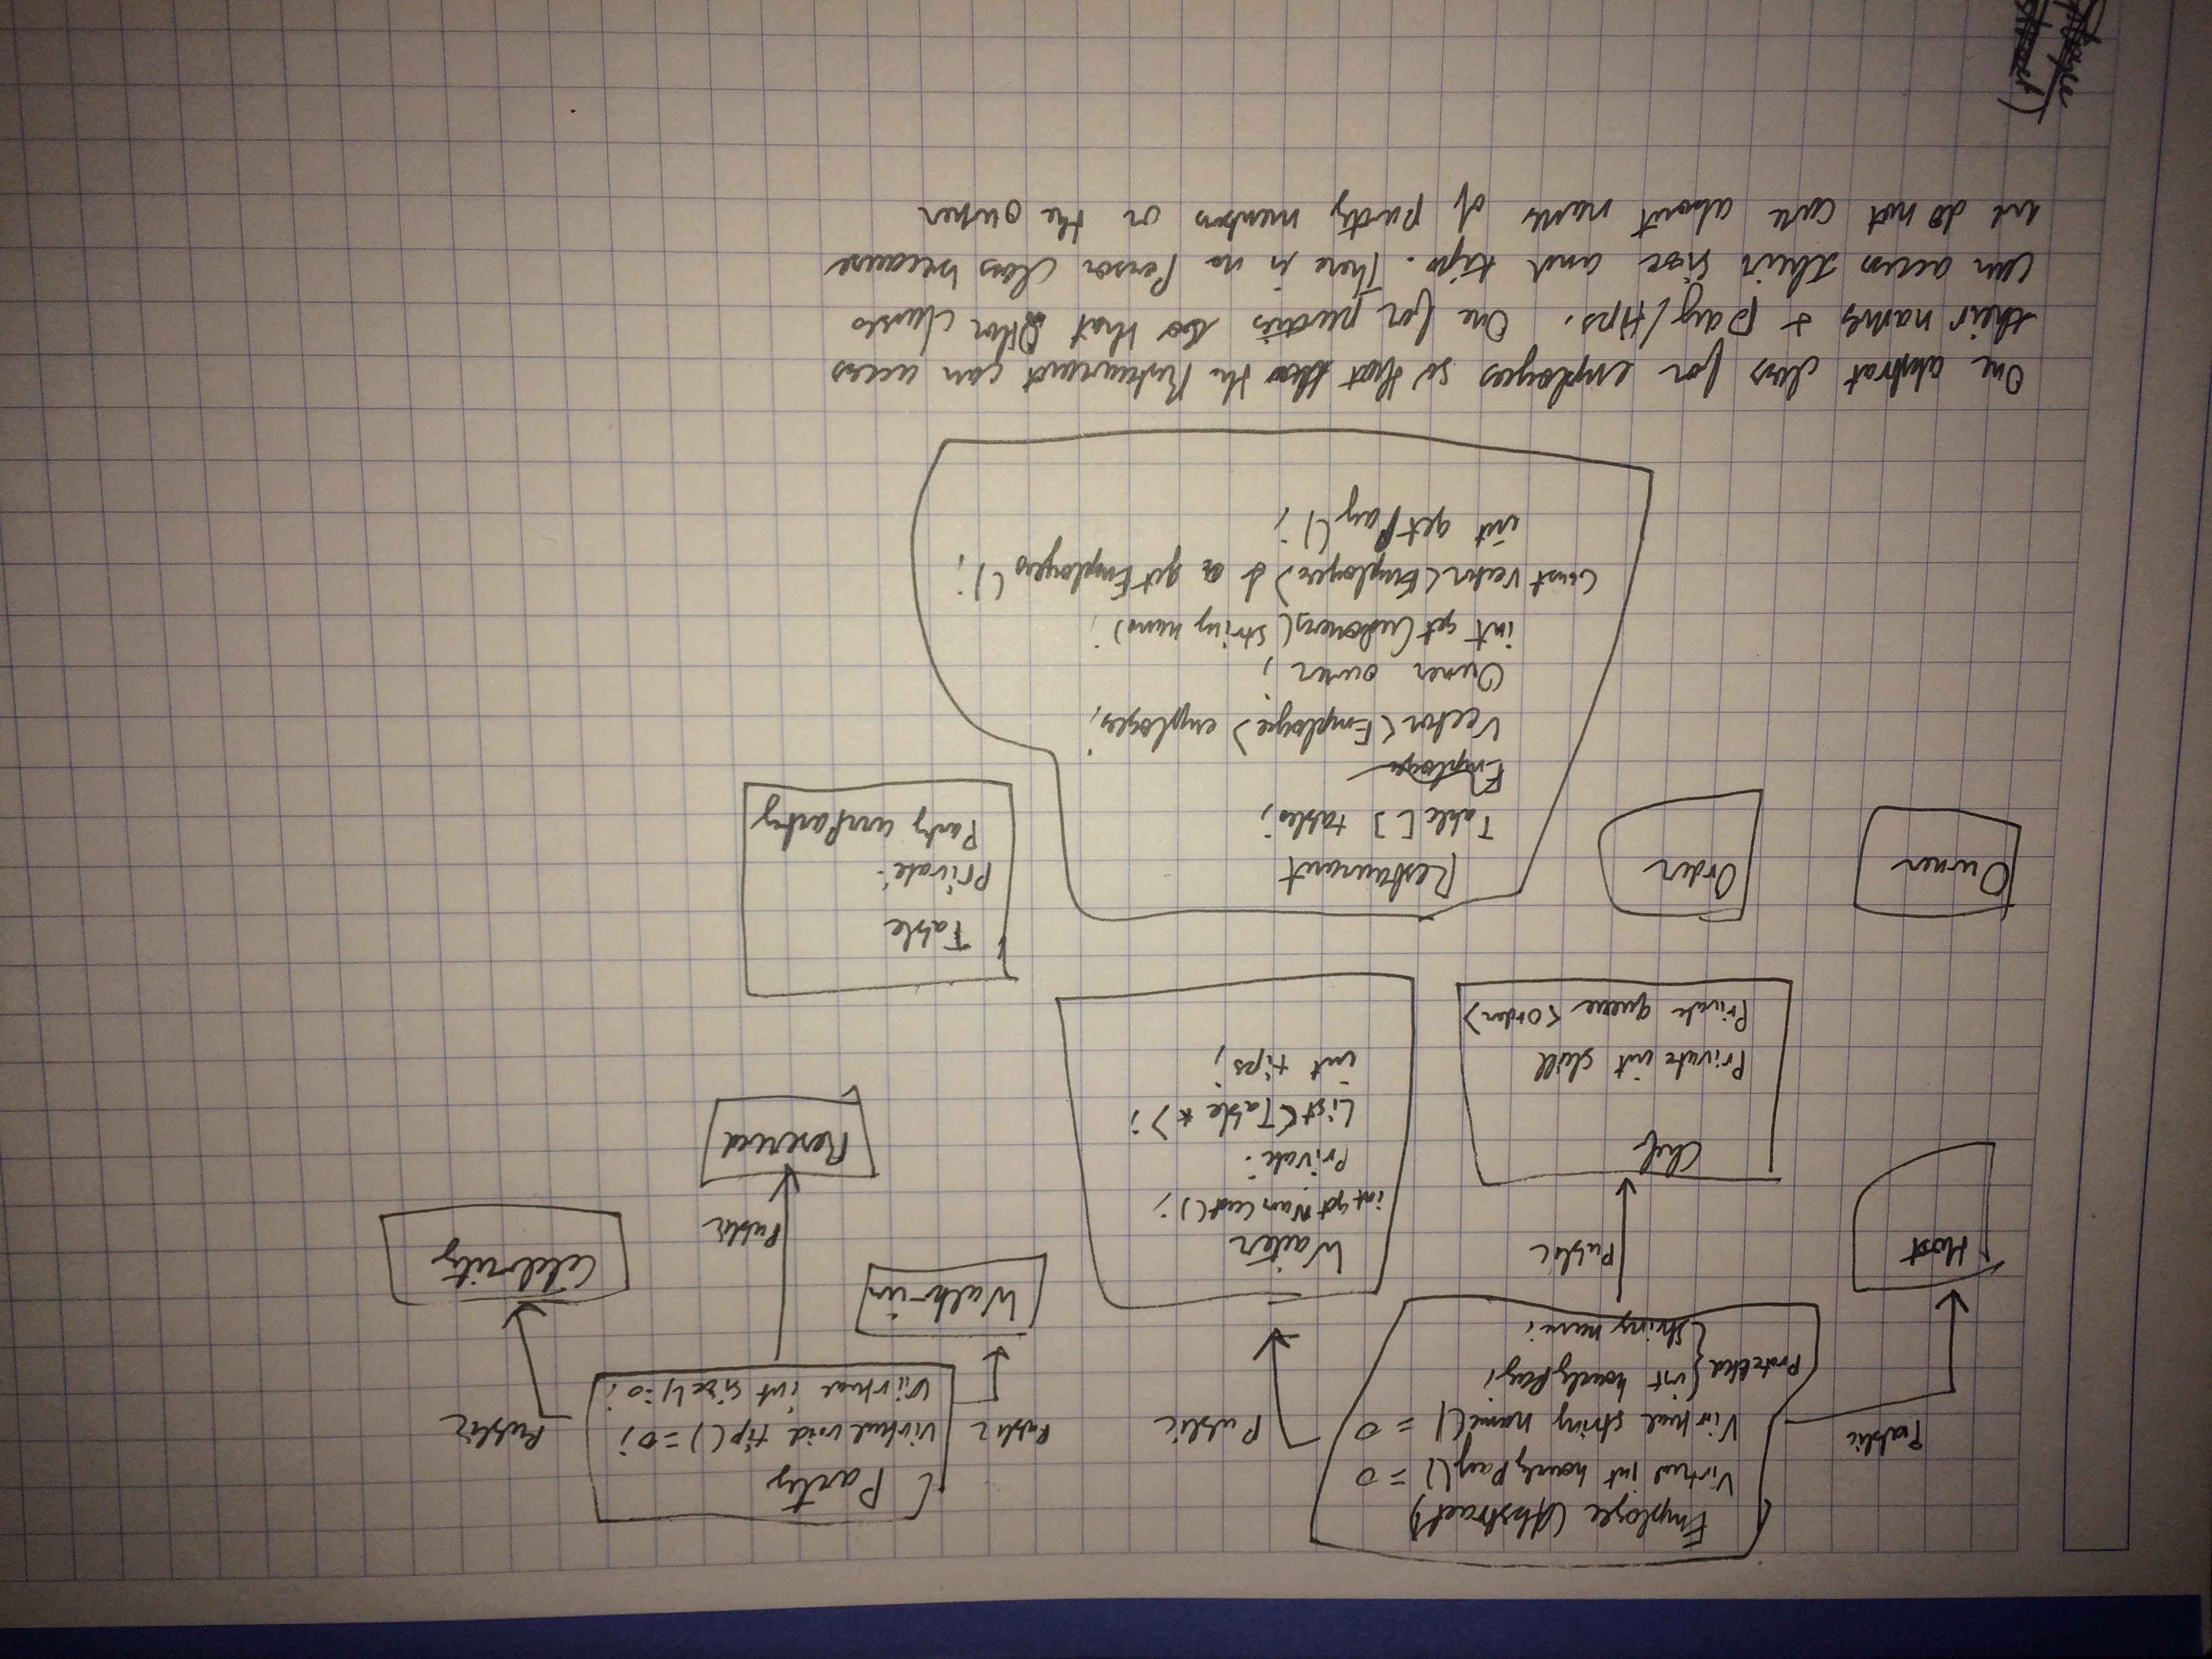 Employee (Abstract)
Virtual int hourlyPay() = 0
Virtual string name() = 0
Protected { int hourlyPay;
{ string name;
Public
Public
Public
Host
Chef
Private int skill
Private queue <order>
Waiter
int getNumCust();
Private:
List<Table *>;
int tips;
Party
virtual void tip() = 0;
Virtual int size() = 0;
Public
Public
Public
Walk-in
Reserved
Celebrity
Table
Private:
Party currParty
Owner
Order
Restaurant
Table [] tables;
Employee
Vector<Employee> employees;
Owner owner;
int getCustomers(string name);
const vector<Employee> & getEmployees();
int getPay();
One abstrat class for employees so that the Restaurant can access
their names & pay/tips. One for parties so that other classes
can access their size and tips. There is no Person class because
we do not care about names of party members or the owner